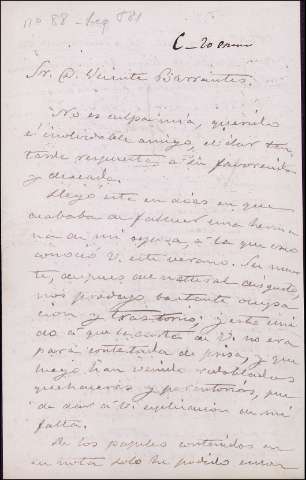 no 88 - leg 581
C - 20 Enero
Sr. D. Vicente Barrantes.
No es culpa mia, querido
é inolvidable amigo, el dar tan
tarde respuesta á su favorecida
y deseada.
Llegó esta en dias en que
acababa de fallecer una herma
na de mi esposa, á la que creo
conoció V. este verano. Su muer
te, despues del natural disgusto
nos produjo bastante ocupa
cion y trastorno; y esto uni
do á que la carta de V. no era
para contestada de prisa, y que
luego han venido redoblados
quehaceres y perentorios, pue
de dar á V. esplicacion de mi
falta.
De los papeles contenidos en
su nota solo he podido encon